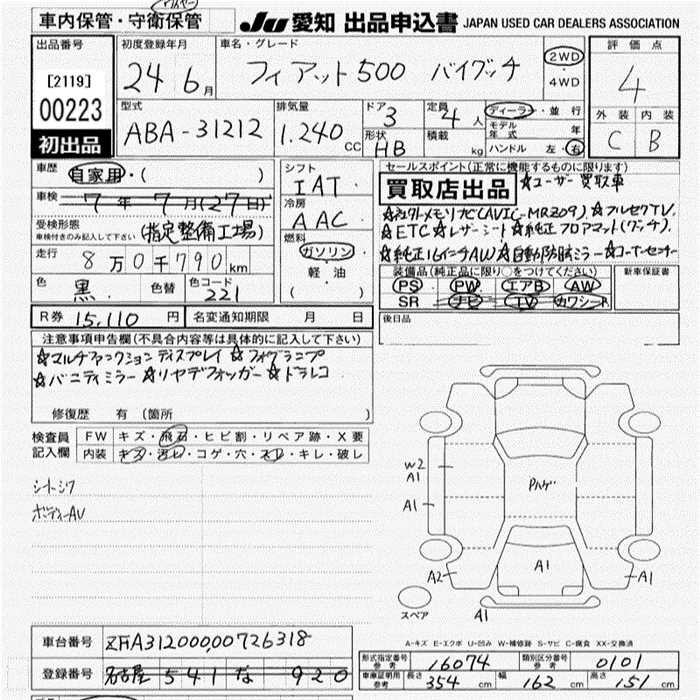 車内保管・守衛保管
JU 愛知 出品申込書 JAPAN USED CAR DEALERS ASSOCIATION
出品番号
[2119]
00223
初出品
初度登録年月
24 6月
車名・グレード
フィアット500 バイグッチ
2WD
・
4WD
評価点
4
外装 内装
C B
型式
ABA-31212
排気量
1.240 cc
ドア 3
形状 HB
定員 4人
積載 kg
ディーラー・並行
モデル年式 年
ハンドル 左・右
車歴 自家用・( )
車検 7年 7月(27日)
受検形態
車検付きのみ記入して下さい (指定整備工場)
走行 8万0千790km
色 黒 色替 色コード 221
シフト
IAT
冷房
AAC
燃料
ガソリン
軽油
( )
セールスポイント(正常に機能するものに限ります)
買取店出品 ☆ユーザー買取車
☆社外メモリナビ(AVIC-MRZ09) ☆フルセグTV
☆ETC ☆レザーシート ☆純正フロアマット(グッチ)
☆純正16インチAW ☆自動防眩ミラー ☆コーナーセンサー
装備品(純正品に限り○をつけてください) 新車保証書
PS PW エアB AW
SR ナビ TV カワシート
後日品
R券 15,110 円 名変通知期限 月 日
注意事項申告欄(不具合内容等は具体的に記入して下さい)
☆マルチファンクションディスプレイ ☆フォグランプ
☆バニティミラー ☆リヤデフォッガー ☆ドラレコ
修復歴 有 (箇所 )
検査員記入欄
FW キズ・飛石・ヒビ割・リペア跡・X要
内装 キズ・汚レ・コゲ・穴・スレ・キレ・破レ
シートシワ
ボディーAU
W2
A1
A1
Pルーゲ
A1
A2
A1
スペア
A1
A-キズ E-エクボ U-凹み W-補修跡 S-サビ C-腐食 XX-交換済
車台番号 ZFA31200000726318
登録番号 名古屋 541 な 920
形式指定番号 参考 16074 類別区分番号 参考 0101
車庫証明用 参考 長さ 354 cm 幅 162 cm 高さ 151 cm